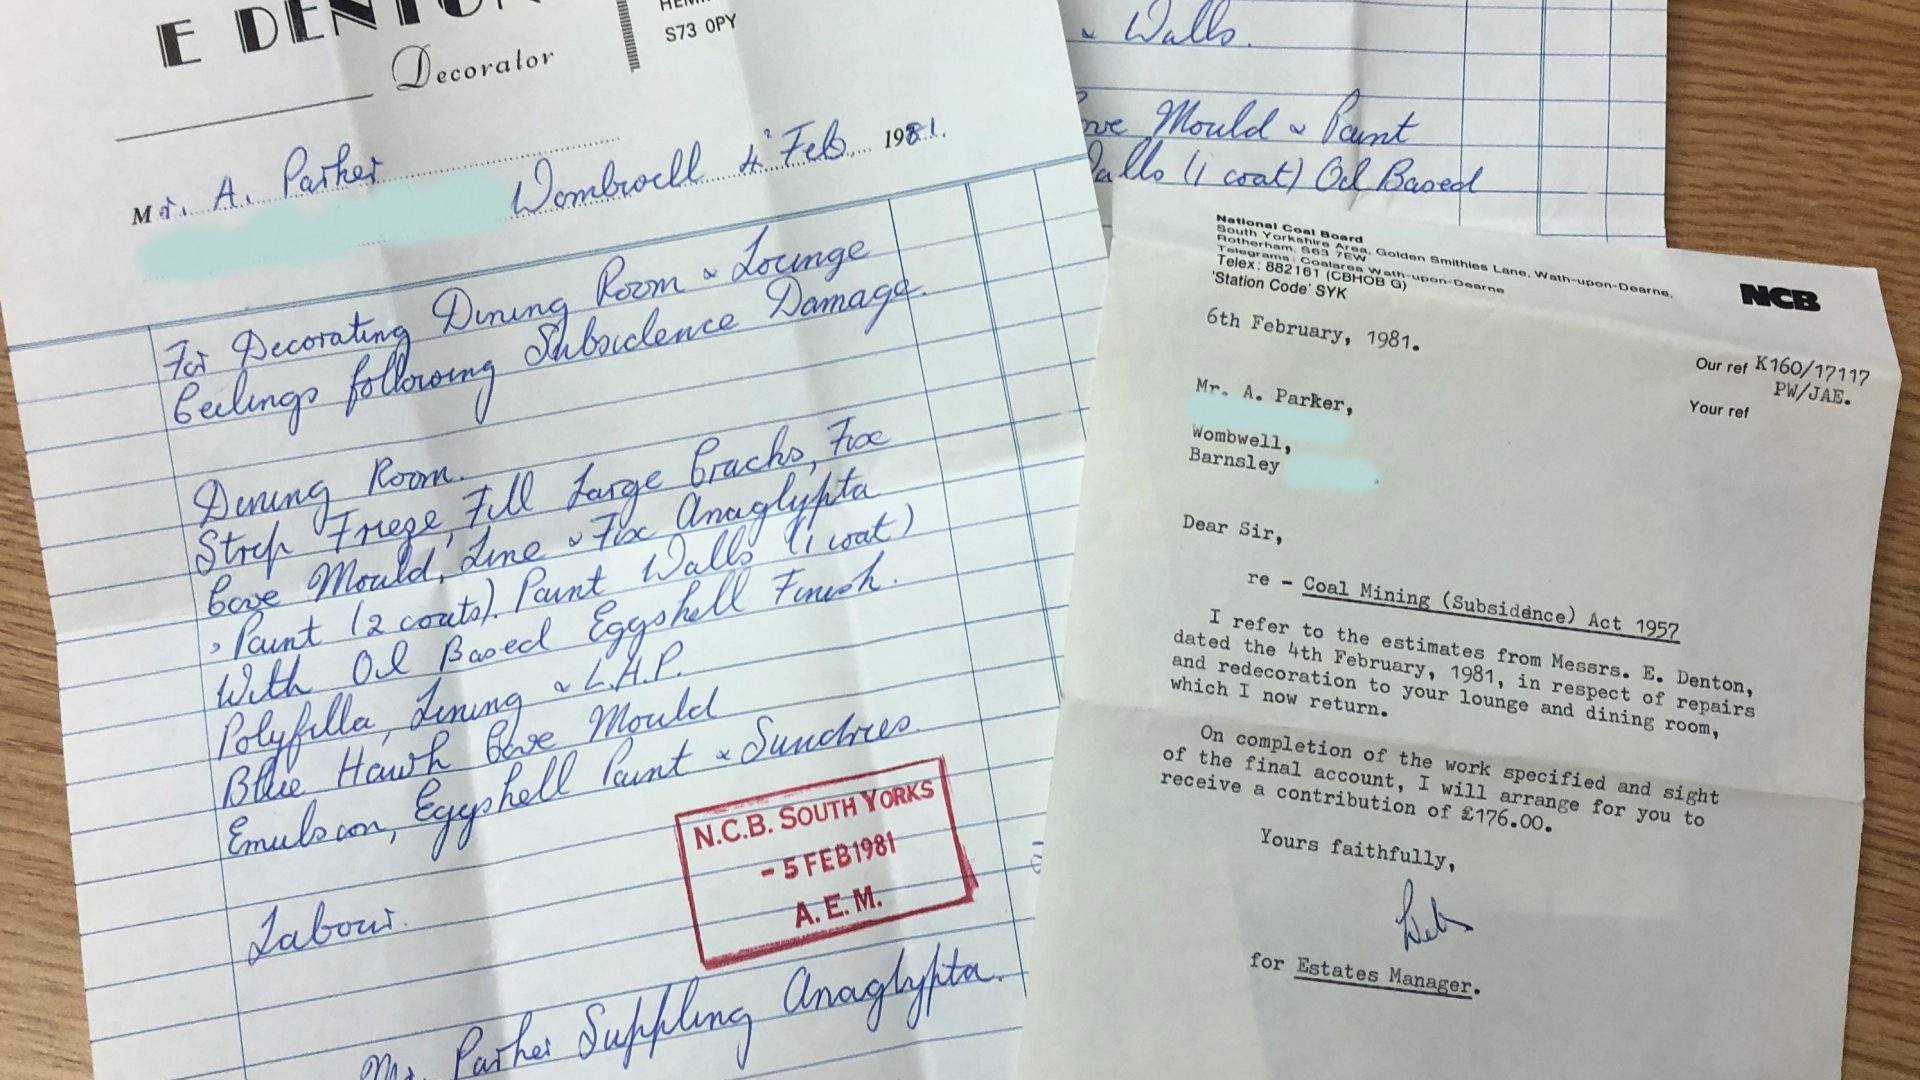 E DENTON
Decorator
S73 0PY
Mr. A. Parker
Wombwell 4 Feb 1981.
For Decorating Dining Room & Lounge
Ceilings following Subsidence Damage.
Dining Room.
Strip Frieze, Fill Large Cracks, Fix
Cove Mould, Line & Fix Anaglypta
, Paint (2 coats). Paint Walls (1 coat)
With Oil Based Eggshell Finish.
Polyfilla, Lining & L.A.P.
Blue Hawk Cove Mould
Emulsion, Eggshell Paint & Sundries.
N.C.B. SOUTH YORKS
- 5 FEB 1981
A. E. M.
Labour.
Mr. Parker Suppling Anaglypta.
& Walls.
Mould & Paint
Walls (1 coat) Oil Based
National Coal Board
South Yorkshire Area, Golden Smithies Lane, Wath-upon-Dearne,
Rotherham. S63 7EW
Telegrams: Coalarea Wath-upon-Dearne
Telex: 882161 (CBHOB G)
'Station Code' SYK
NCB
6th February, 1981.
Our ref K160/17117
PW/JAE.
Your ref
Mr. A. Parker,
Wombwell,
Barnsley
Dear Sir,
re - Coal Mining (Subsidence) Act 1957
I refer to the estimates from Messrs. E. Denton,
dated the 4th February, 1981, in respect of repairs
and redecoration to your lounge and dining room,
which I now return.
On completion of the work specified and sight
of the final account, I will arrange for you to
receive a contribution of £176.00.
Yours faithfully,
for Estates Manager.